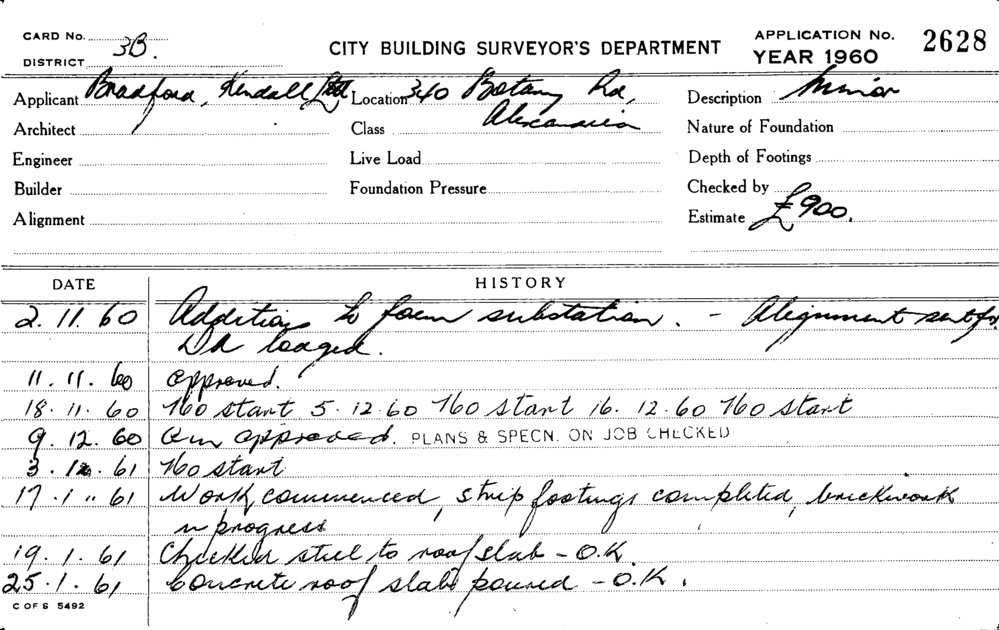 CARD No. 3B.
DISTRICT
CITY BUILDING SURVEYOR'S DEPARTMENT
APPLICATION No. 2628
YEAR 1960
Applicant Bradford, Kendall Ltd Location 340 Botany Rd, Description Minor
Architect Class Alexandria Nature of Foundation
Engineer Live Load Depth of Footings
Builder Foundation Pressure Checked by
Alignment Estimate £900.
DATE HISTORY
2. 11. 60 Additions to form substation. - Alignment sent for.
DA lodged.
11. 11. 60 approved.
18. 11. 60 No start 5. 12. 60 No start 16. 12. 60 No start
9. 12. 60 approved. PLANS & SPECN. ON JOB CHECKED
3. 1. 61 No start
17. 1 " 61 Work commenced, strip footings completed, brickwork
in progress
19. 1. 61 Checked steel to roof slab - O.K.
25. 1. 61 Concrete roof slab poured - O.K.
C OF S 5492